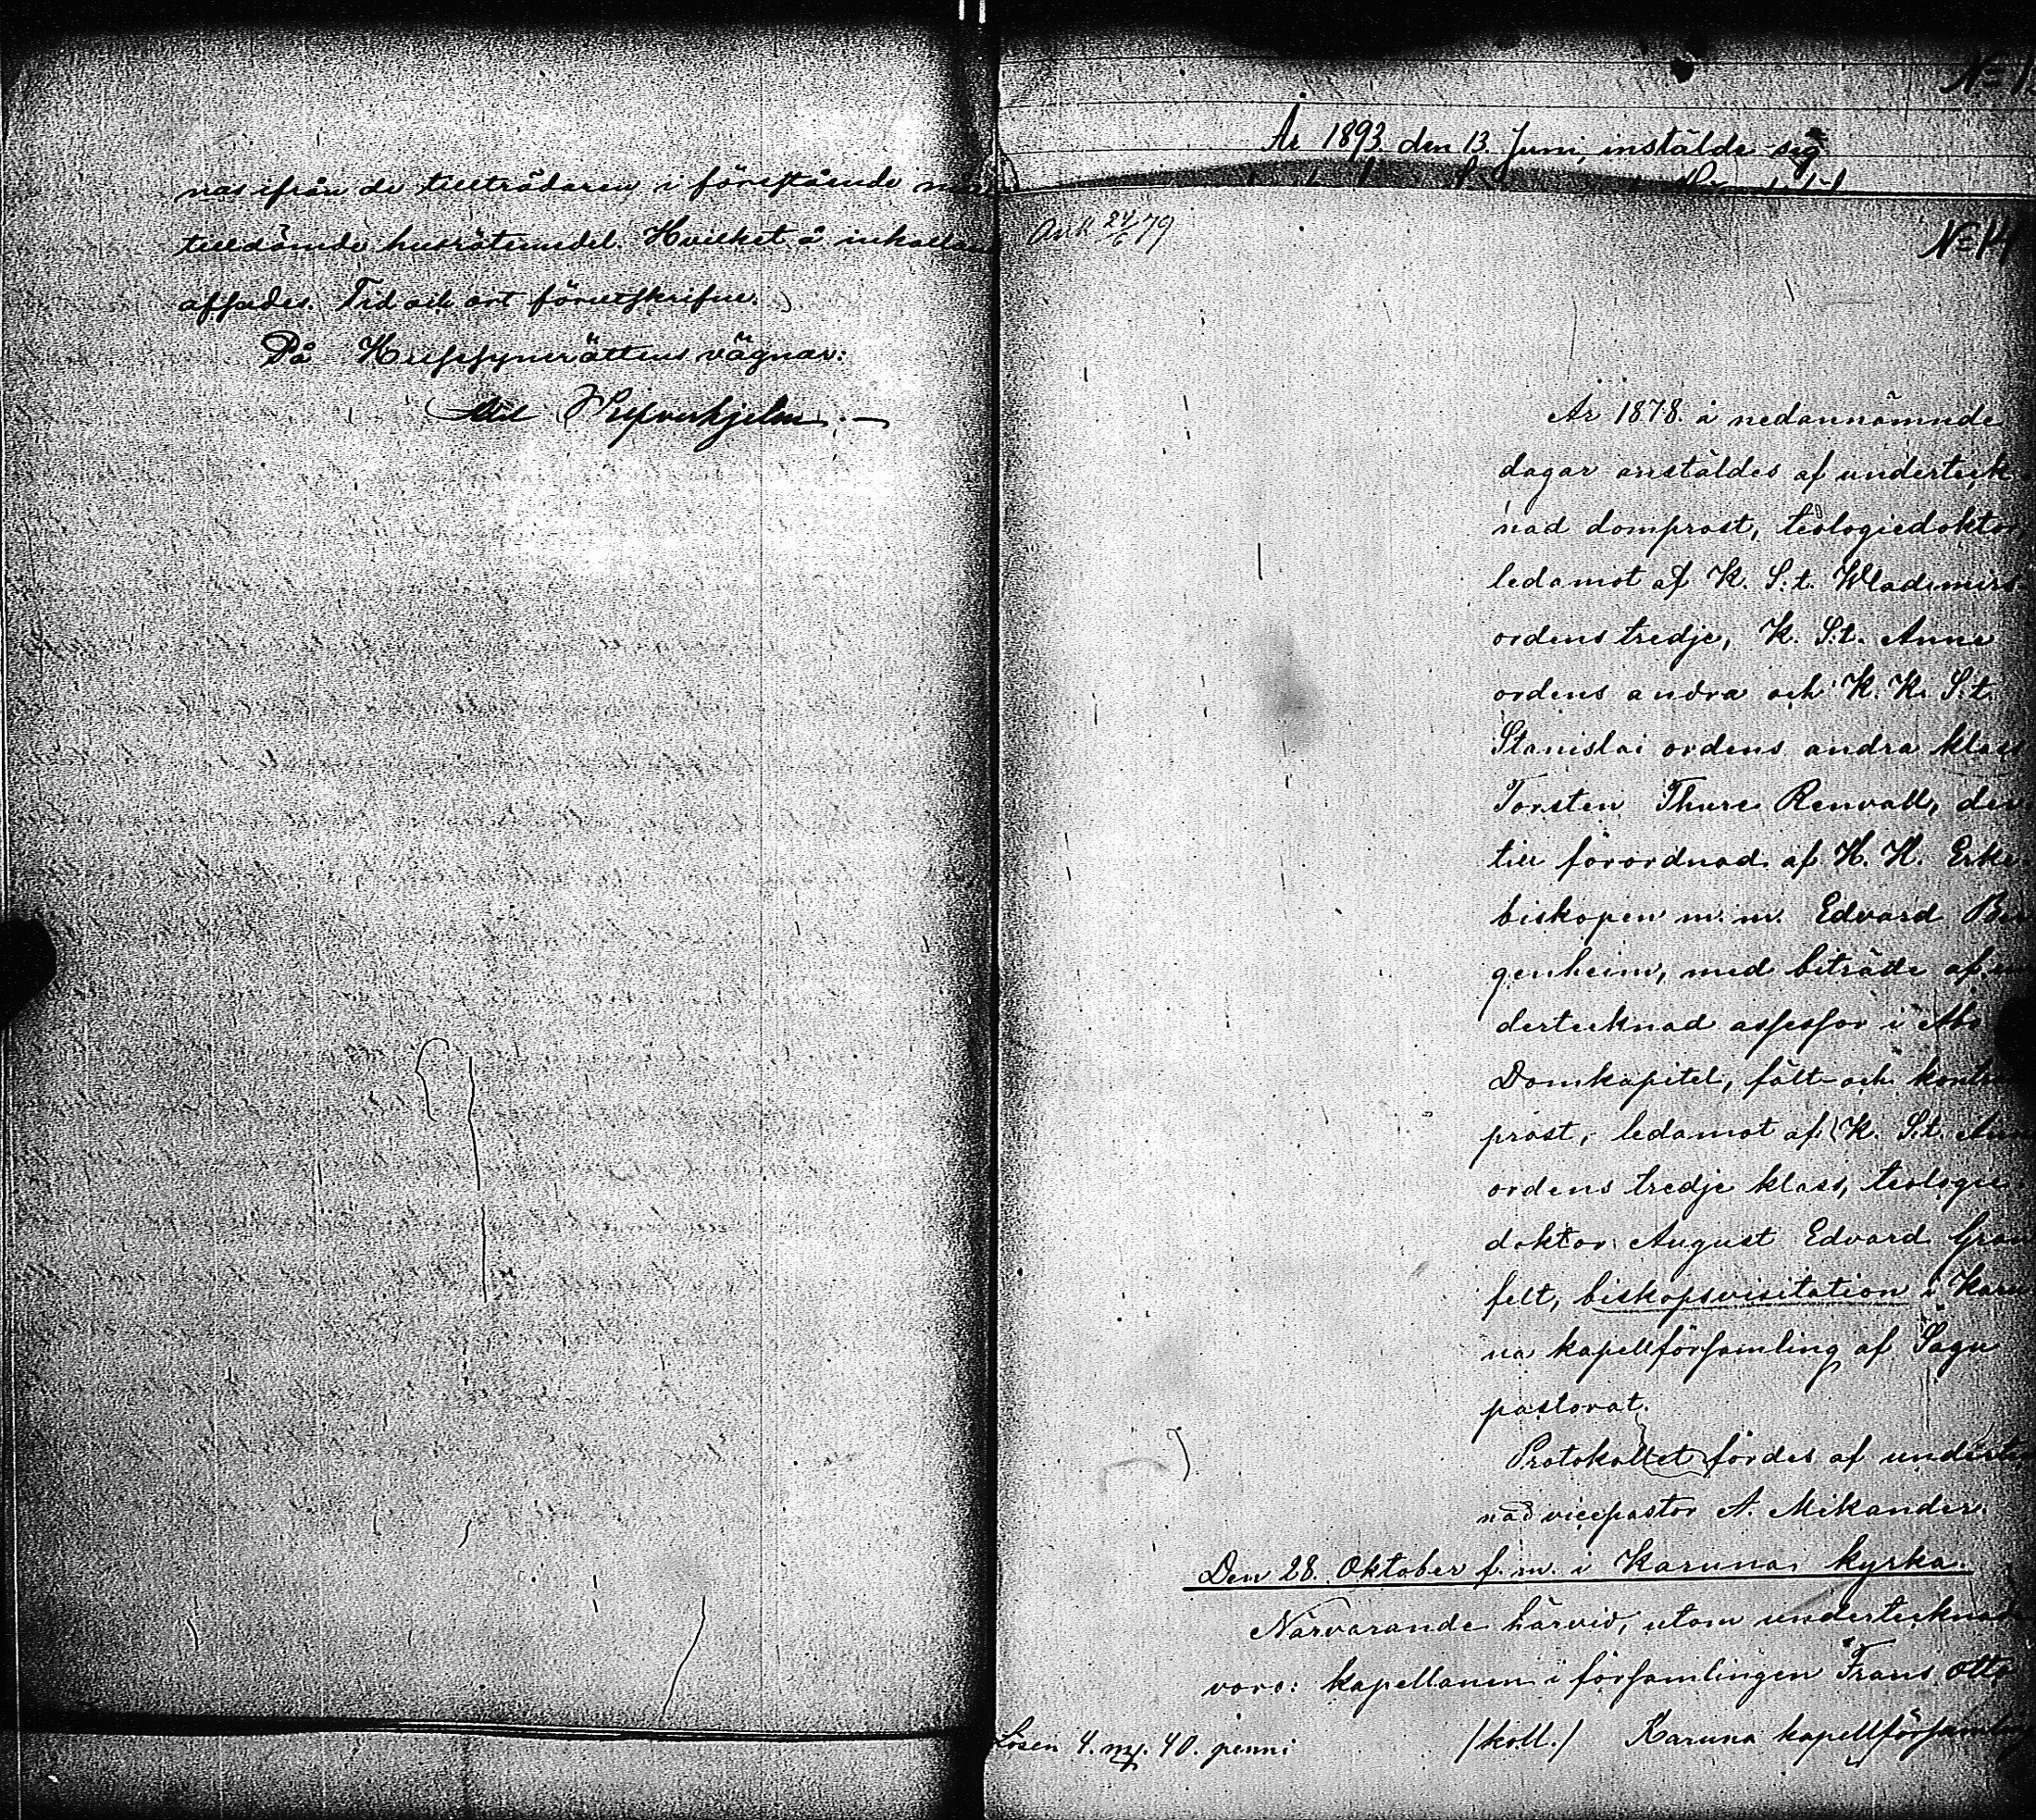 nas ifrån de tillträdaren i förestående
tilldömde husrötemedel. Hvilket å
afsades. Tid och ort förutskrifne.
På Hussynerättens vägnar:
№ 1
År 1893 den 13. Juni, instälde sig
Ank 24/6 79
№ 14
År 1878 å nedannämnde
dagar anstäldes af underteck
nad domprost, teologiedoktor
ledamot af K. S:t. Wladimirs
ordens tredje, K. S:t. Anne
ordens andra och K. K. S:t.
Stanislai ordens andra klass
Torsten Thure Renvall, der
till förordnad af H. H. Erke
biskopen m. m. Edvard Ber
genheim, med biträde af un
dertecknad assessor i Åbo
Domkapitel, fält- och kontra
prost, ledamot af K. S:t. Ann
ordens tredje klass, teologie
doktor August Edvard Gran
felt, biskopsvisitation i Karu
na kapellförsamling af Sagu
pastorat.
Protokollet fördes af underte
nad vicepastor A. Mikander.
Den 28. Oktober f. m. i Karuna kyrka.
Närvarande härvid, utom undertecknade
voro: kapellanen i församlingen Frans Otto
Lösen 4. mk. 40. penni /koll./ Karuna kapellförsamling